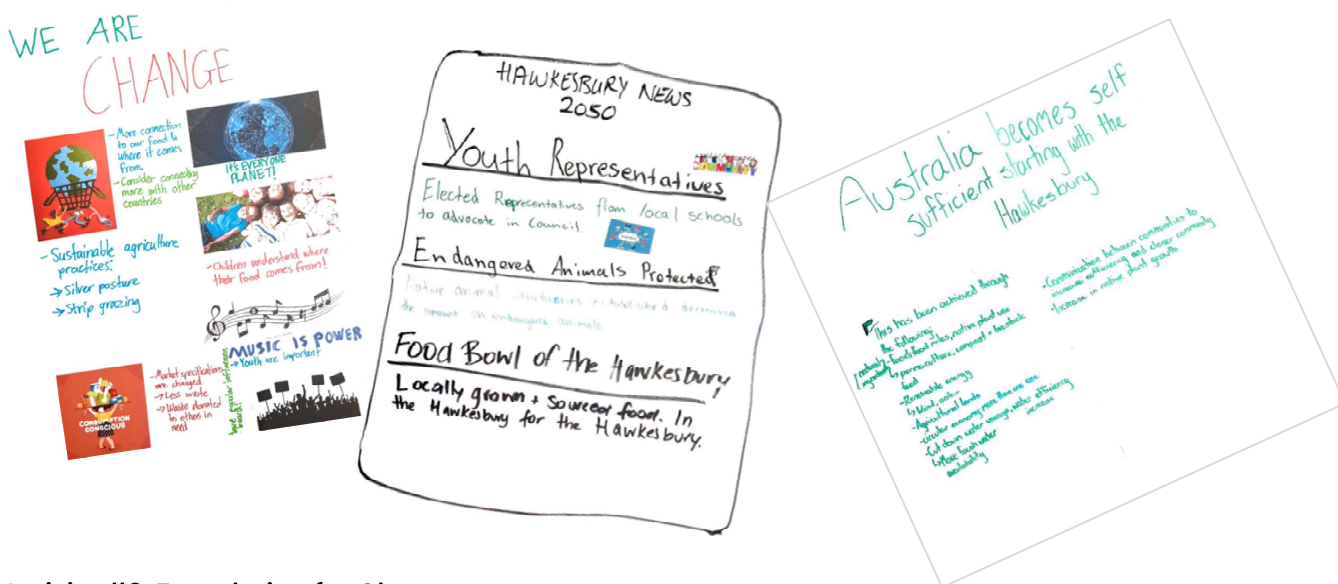 WE ARE
CHANGE
- More connection
to our food &
where it comes
from.
- Consider connecting
more with other
countries
IT'S EVERYONE
PLANET!
- Sustainable agriculture
practices:
→ Silver posture
→ Strip grazing
- Children understand where
their food comes from!
MUSIC IS POWER
→ Youth are important
- Market specifications
are changed
→ Less waste
→ Waste donated
to others in
need
CONSUMPTION
CONSCIOUS
HAWKESBURY NEWS
2050
Youth Representatives
COMMUNITY
Elected Representatives from local schools
to advocate in Council.
Endangered Animals Protected
Native animal sanctuaries established
the amount on endangered animals.
Food Bowl of the Hawkesbury!
Locally grown + sourced food. In
the Hawkesbury for the Hawkesbury.
Australia becomes self
sufficient starting with the
Hawkesbury
This has been achieved through
the following:
- Food/food miles, native plant use
↳ permaculture, compost + livestock
feed
- Renewable energy
↳ Wind, solar
- Agricultural lands
- circular economy more than one use
- Cut down water useage, water efficiency
increase
↳ More fresh water
availability
- Communication between communities to
increase sufficiency and closer community
- Increase in native plant growth